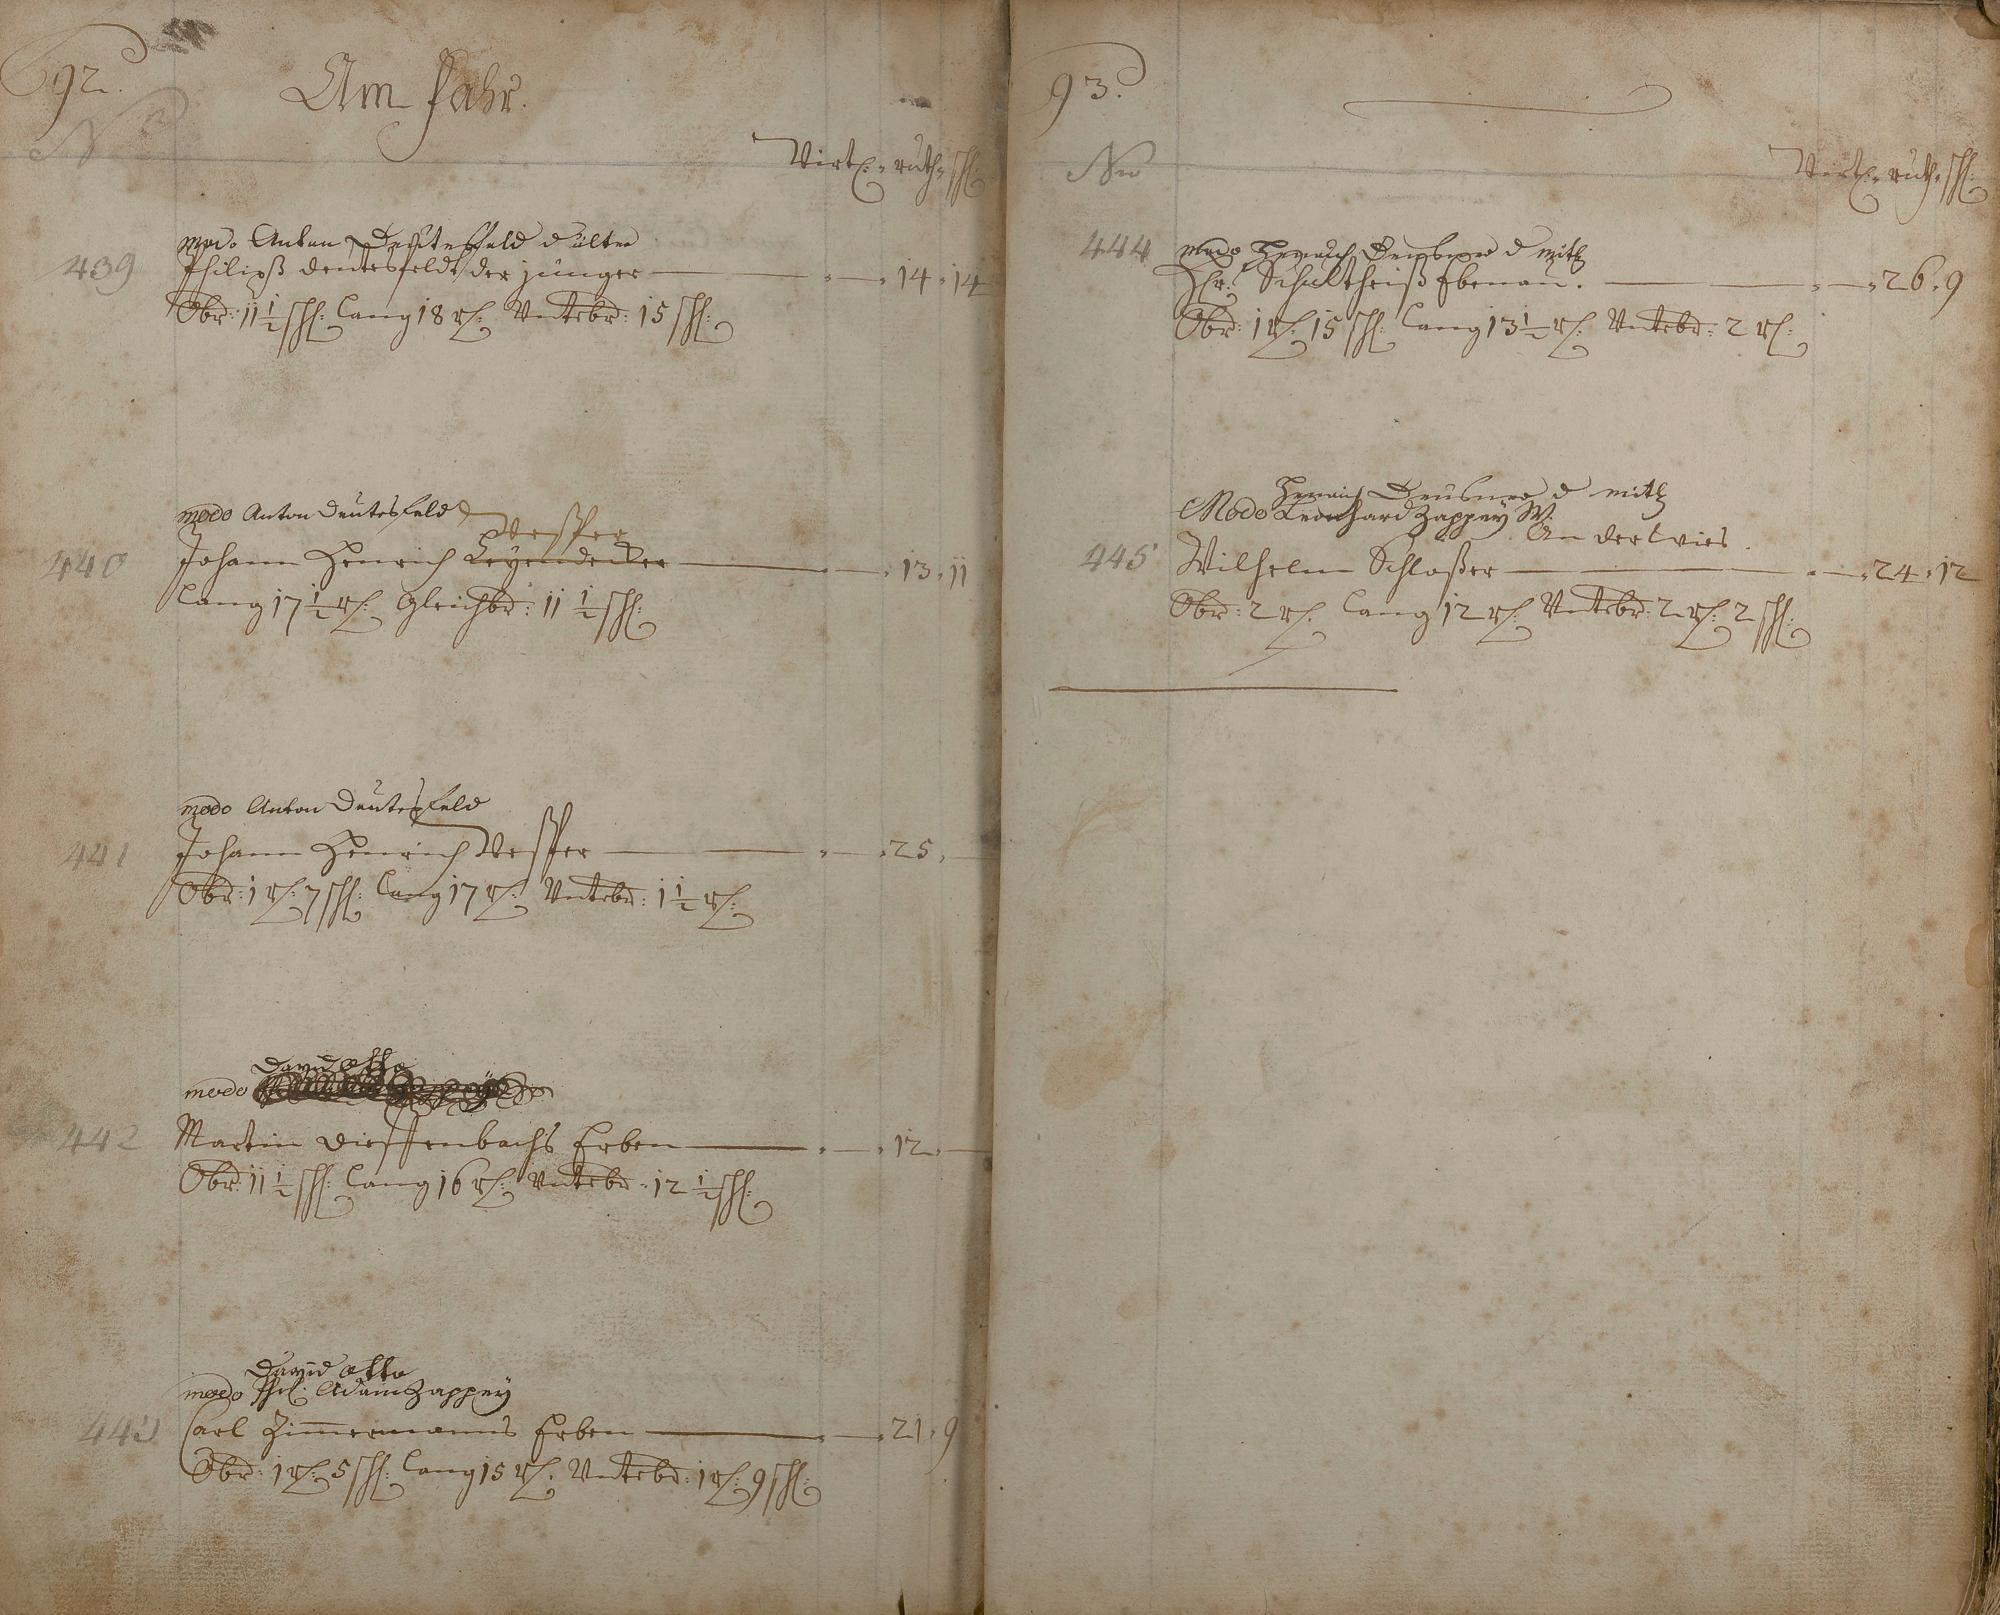 92.
Am Pfahr.
No
Virtl: ruth schl:
modo Anton Deutesfeld d älter
439 Philipß deutesfeldt der junger — 14 14
Obr: 11 1/2 schl: Lang 18 rl: Vntrbr: 15 schl:
modo Anton deutesfeld
Vesper
440 Johann Henrich Leyendecker — 13 11
Lang 17 1/2 rl: Gleichbr: 11 1/2 schl:
modo Anton deutesfeld
441 Johann Henrich Vesper — 25
Obr: 1 rl: 7 schl: Lang 17 rl: Vntrbr: 1 1/2 rl:
David Otto
modo
442 Martin dieffenbachs Erben — 12
Obr: 11 1/2 schl: Lang 16 rl: Vntrbr: 12 1/2 schl:
David Otto
modo Phil: Adam Zappey
443 Carl Zimmermanns Erben — 21 9
Obr: 1 rl: 5 schl: Lang 15 rl: Vntrbr: 1 rl: 9 schl:
93.
No
Virtl: ruth schl:
modo Henrich Deusner d mitl
444 Hr: Schultheiß Ebenau. — 26 9
Obr: 1 rl: 15 schl: Lang 13 1/2 rl: Vntrbr: 2 rl:
Henrich Deusner d mitl
Modo Leonhard Zappey W:
An der wies
445 Wilhelm Schloßer — 24 12
Obr: 2 rl: Lang 12 rl: Vntrbr: 2 rl: 2 schl: